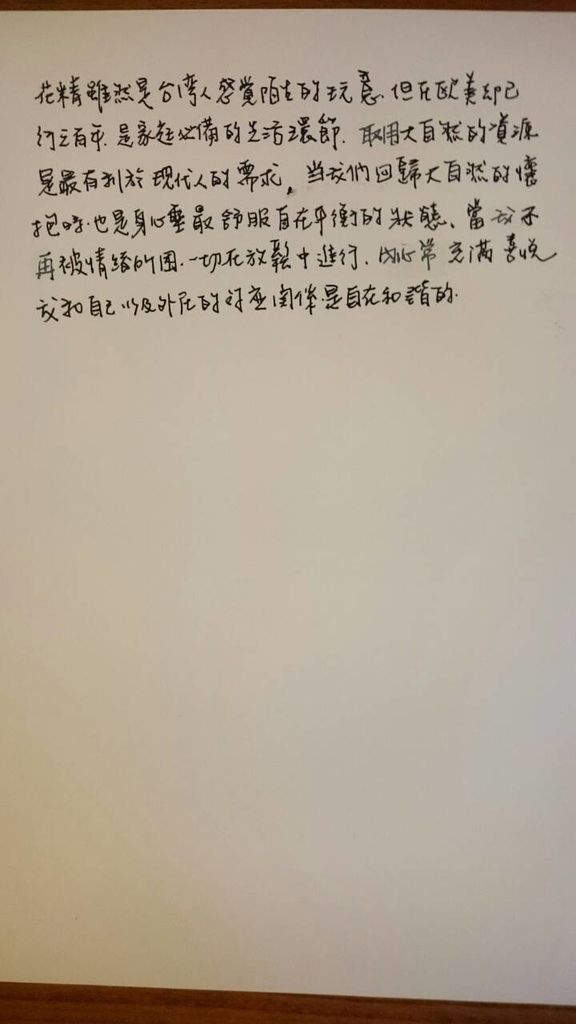 花精雖然是台湾人感覺陌生的玩意.但在歐美却已
行之百年.是家庭必備的生活環節.取用大自然的資源
是最有利於現代人的需求。当我們回歸大自然的懷
抱時.也是身心靈最舒服自在平衡的狀態、當我不
再被情緒所困.一切在放鬆中進行.內心常充滿喜悅
我和自己以及外在的对应関係是自在和諧的.